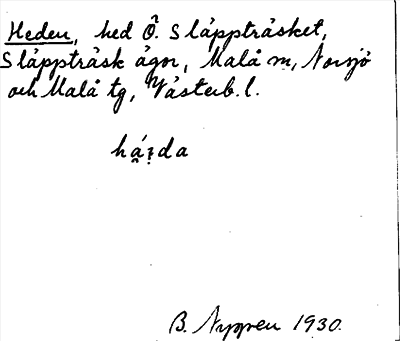 Heden, hed Ö. Släppträsket,
Släppträsk ägor, Malå sn, Norsjö
och Malå tg, Västerb. l.
há̯ꞩda
B. Nygren 1930.